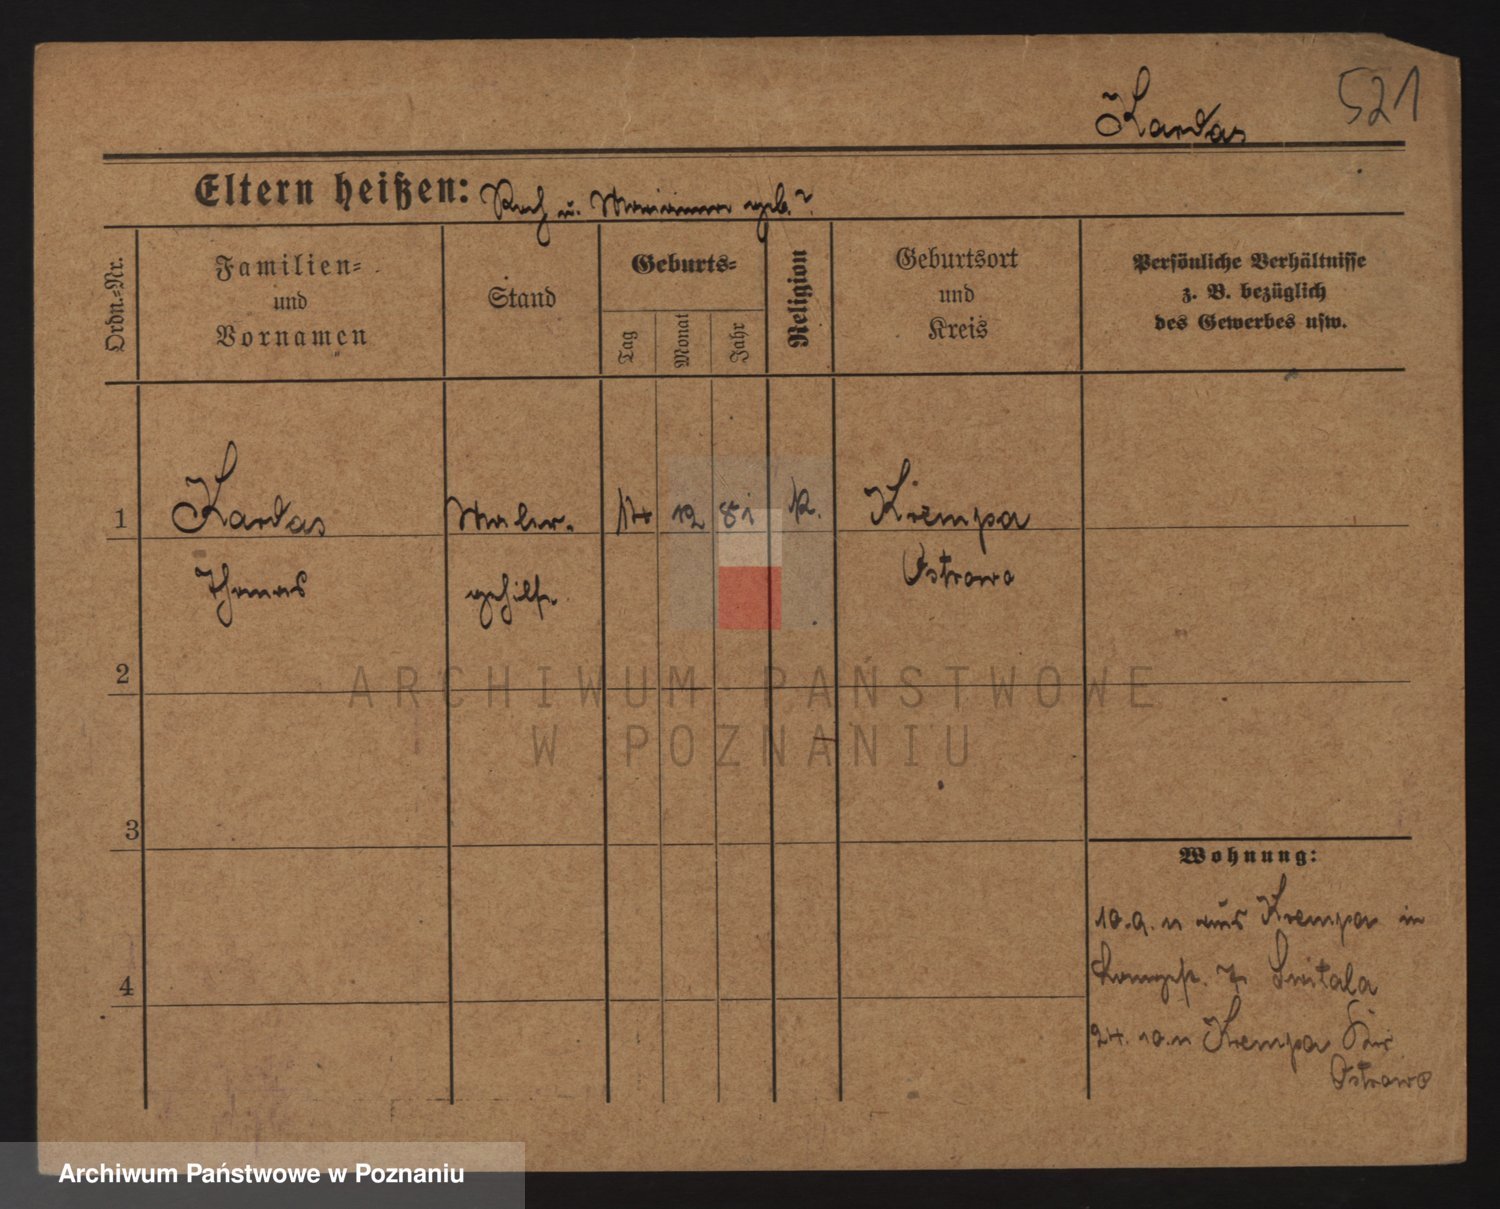 521
Kardas
Eltern heißen: Roch u. Marianna geb. ?
Ordn.-Nr.
Familien-
und
Vornamen
Stand
Geburts-
Tag
Monat
Jahr
Religion
Geburtsort
und
Kreis
Persönliche Verhältnisse
z. B. bezüglich
des Gewerbes usw.
1 Kardas Maler- 14 12 81 k. Krempa
Thomas gehilfe Ostrowo
2
ARCHIWUM PAŃSTWOWE
W POZNANIU
3
Wohnung:
10.9. 11 aus Krempa in
Langestr. 7 Switala
4
24. 10. 11 Krempa Kr.
Ostrowo
Archiwum Państwowe w Poznaniu